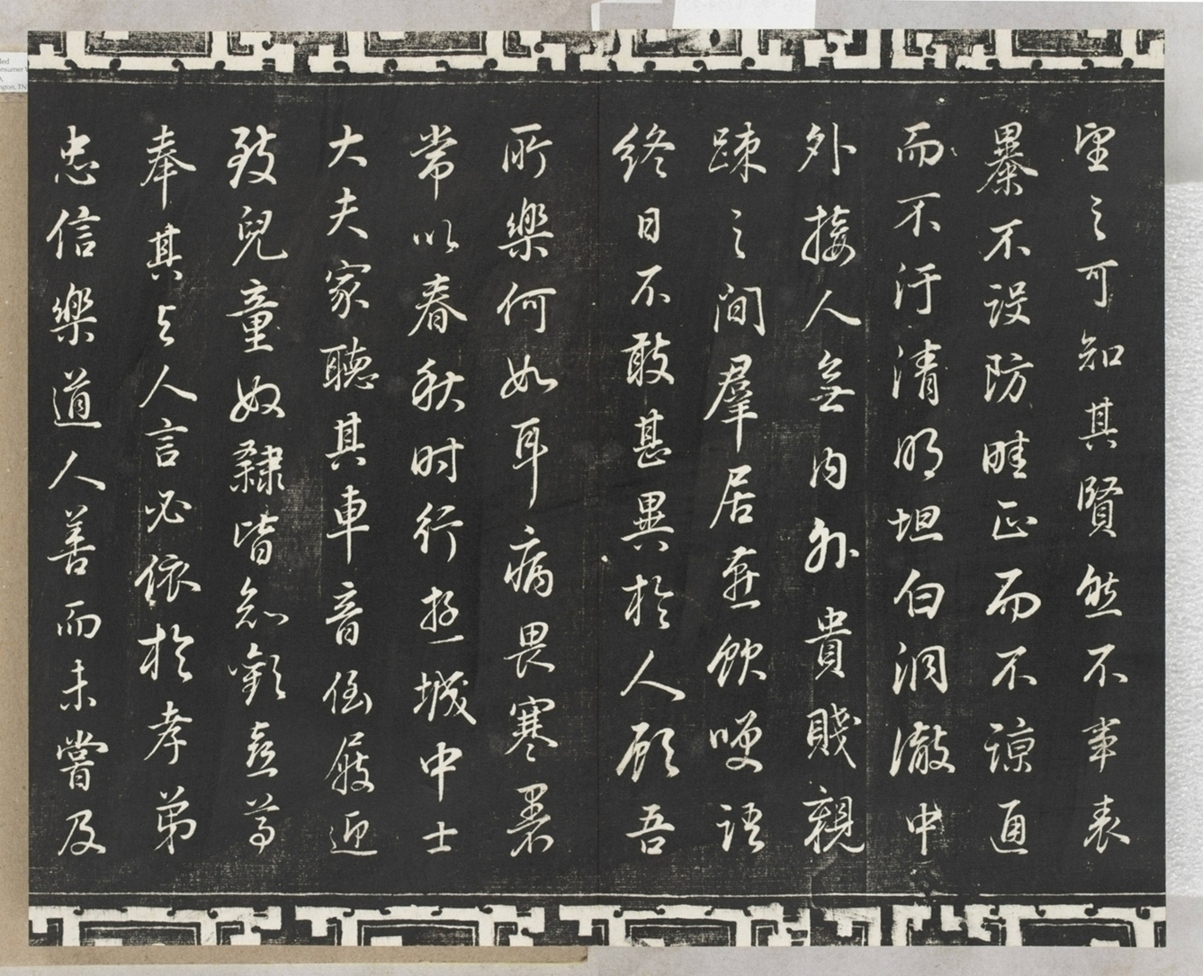 望之可知其賢然不事表
暴不設防畦正而不諒通
而不汙清明坦白洞徹中
外接人無内外貴賤親
踈之間羣居燕飲咲語
終日不敢甚異於人顧吾
所樂何如耳病畏寒暑
常以春秋時行遊城中士
大夫家聽其車音倒屣迎
致兒童奴隸皆知歡喜尊
奉其與人言必依於孝弟
忠信樂道人善而未嘗及